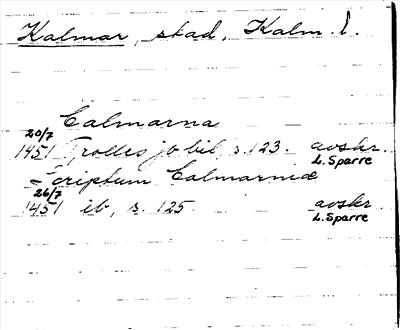 Kalmar, stad, Kalm. l.
Calmarna
20/7
1451 Trolles jb bil, s. 123. avskr.
L. Sparre
Scriptum Calmarnie
26/7
1451 ib, s. 125. avskr
L. Sparre